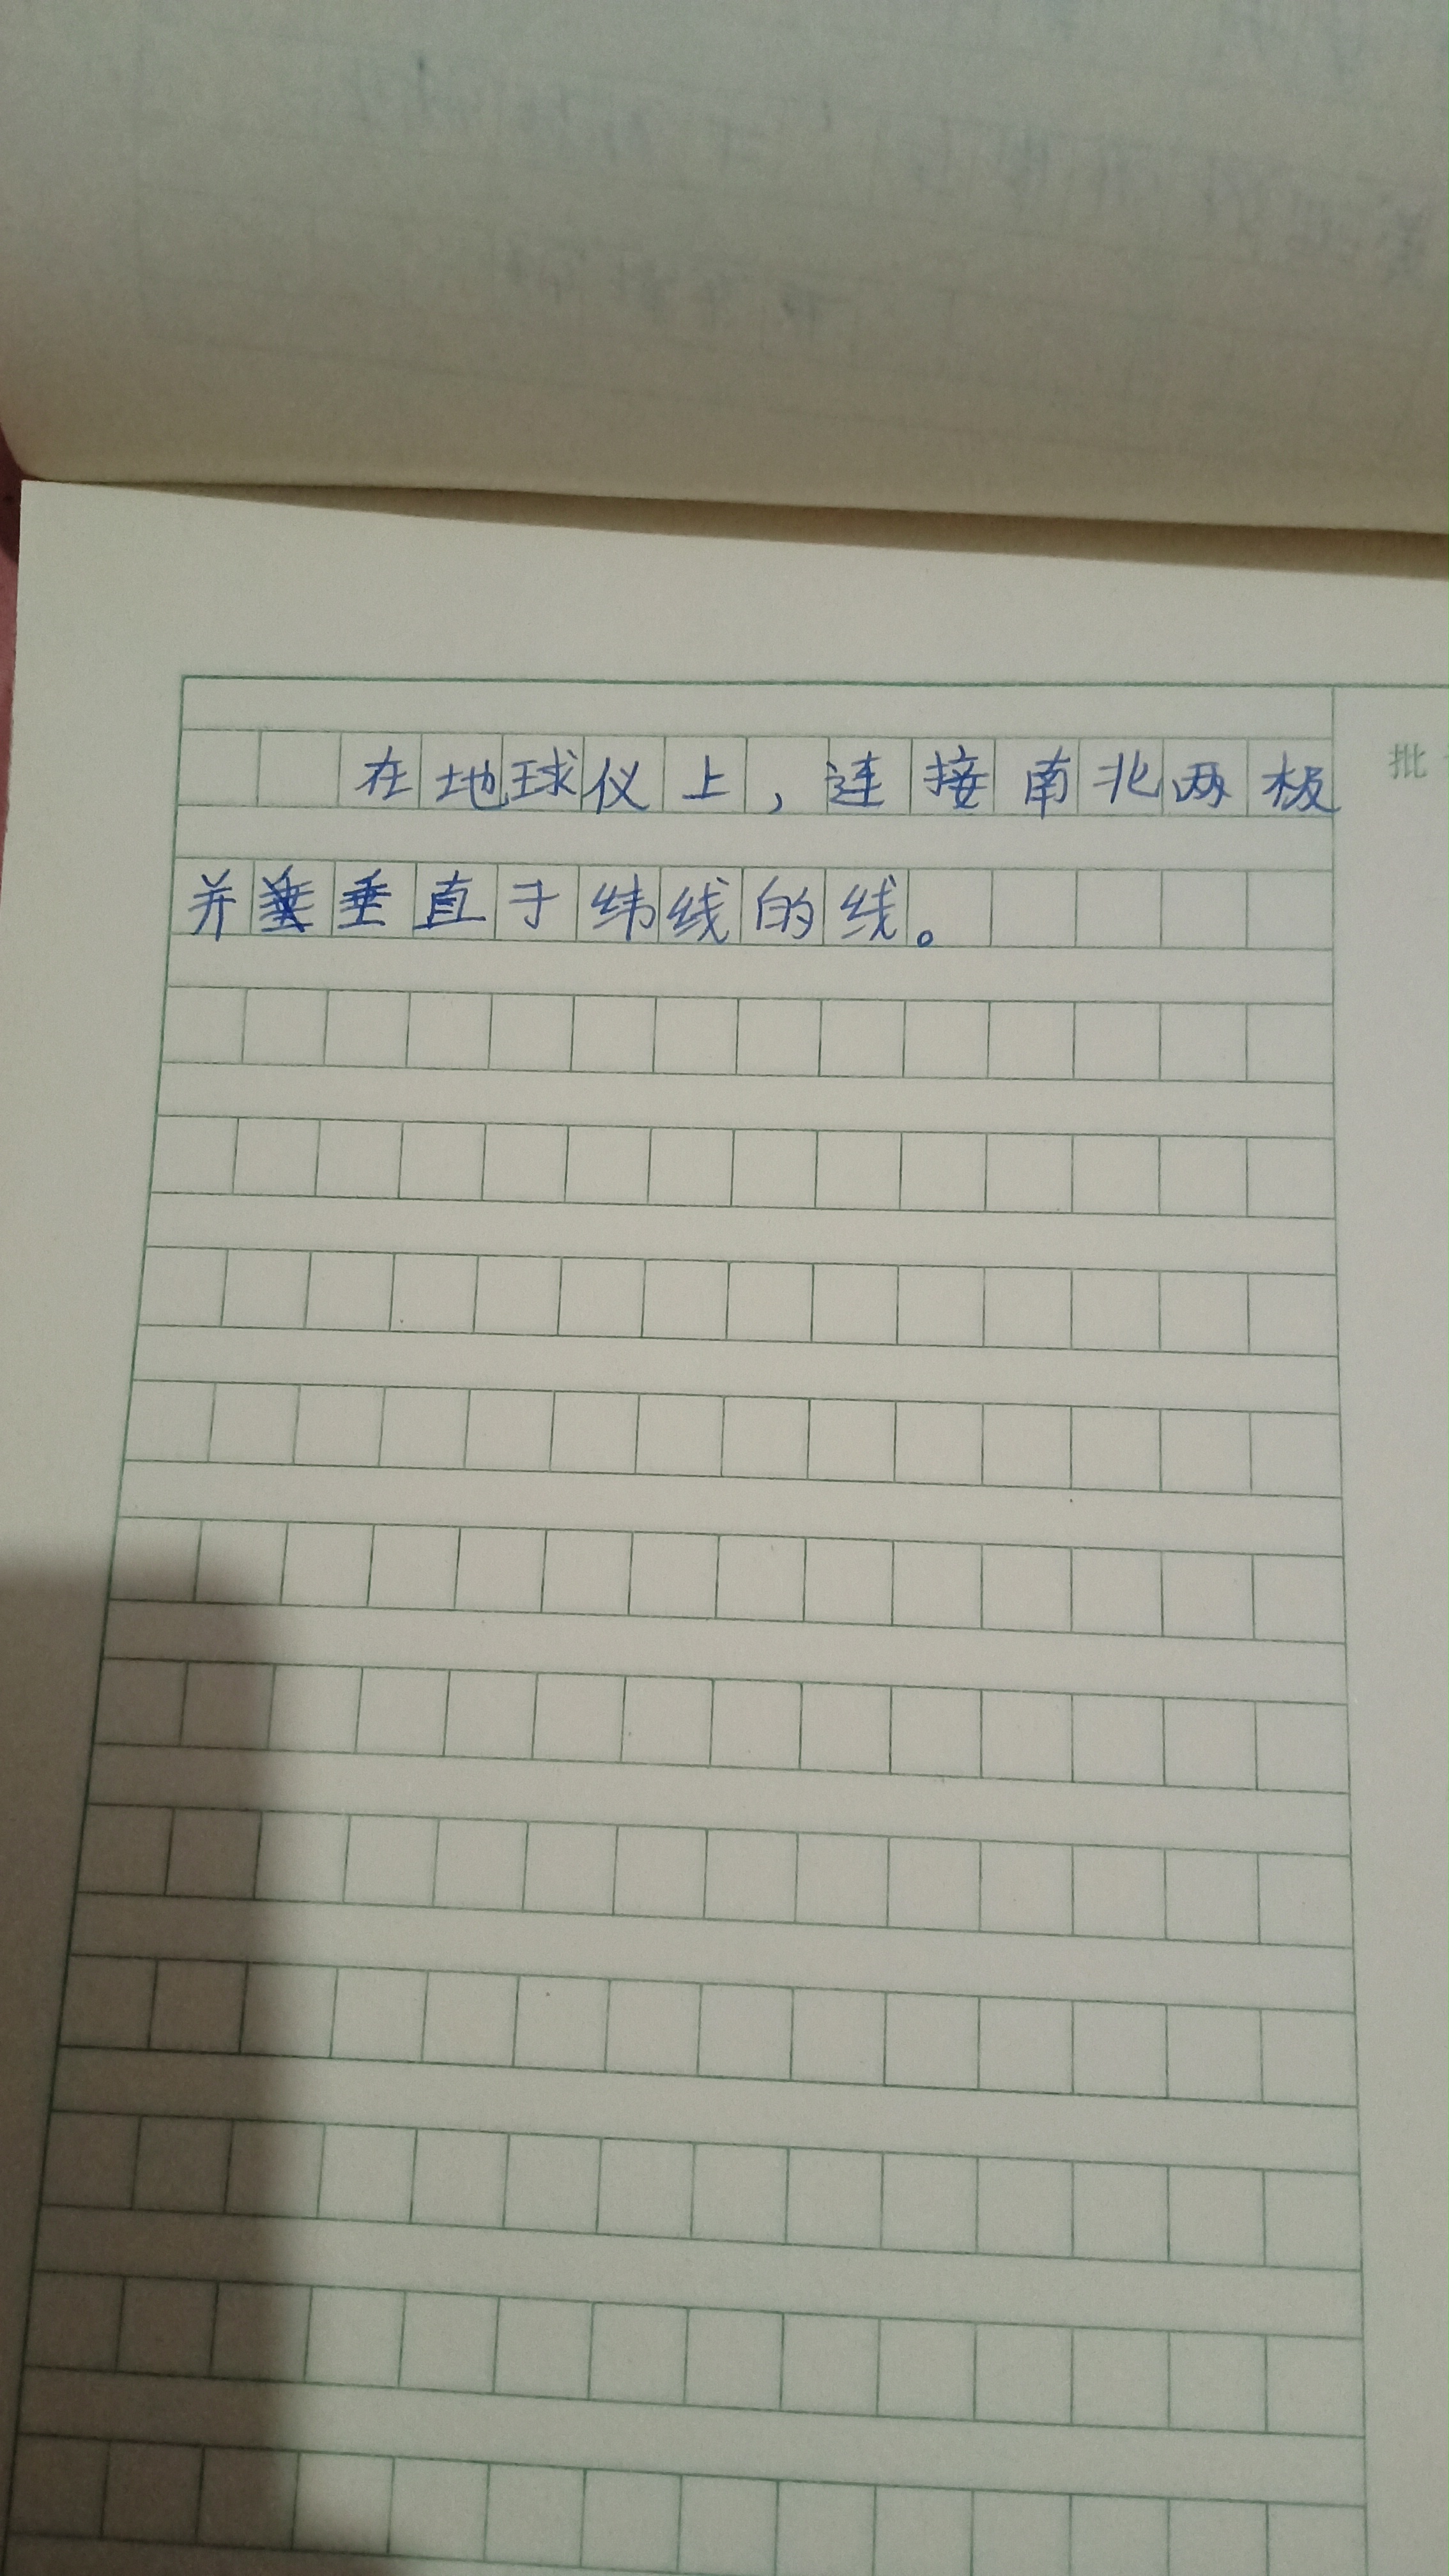 在地球仪上，连接南北两极
并垂直于纬线的线。
批